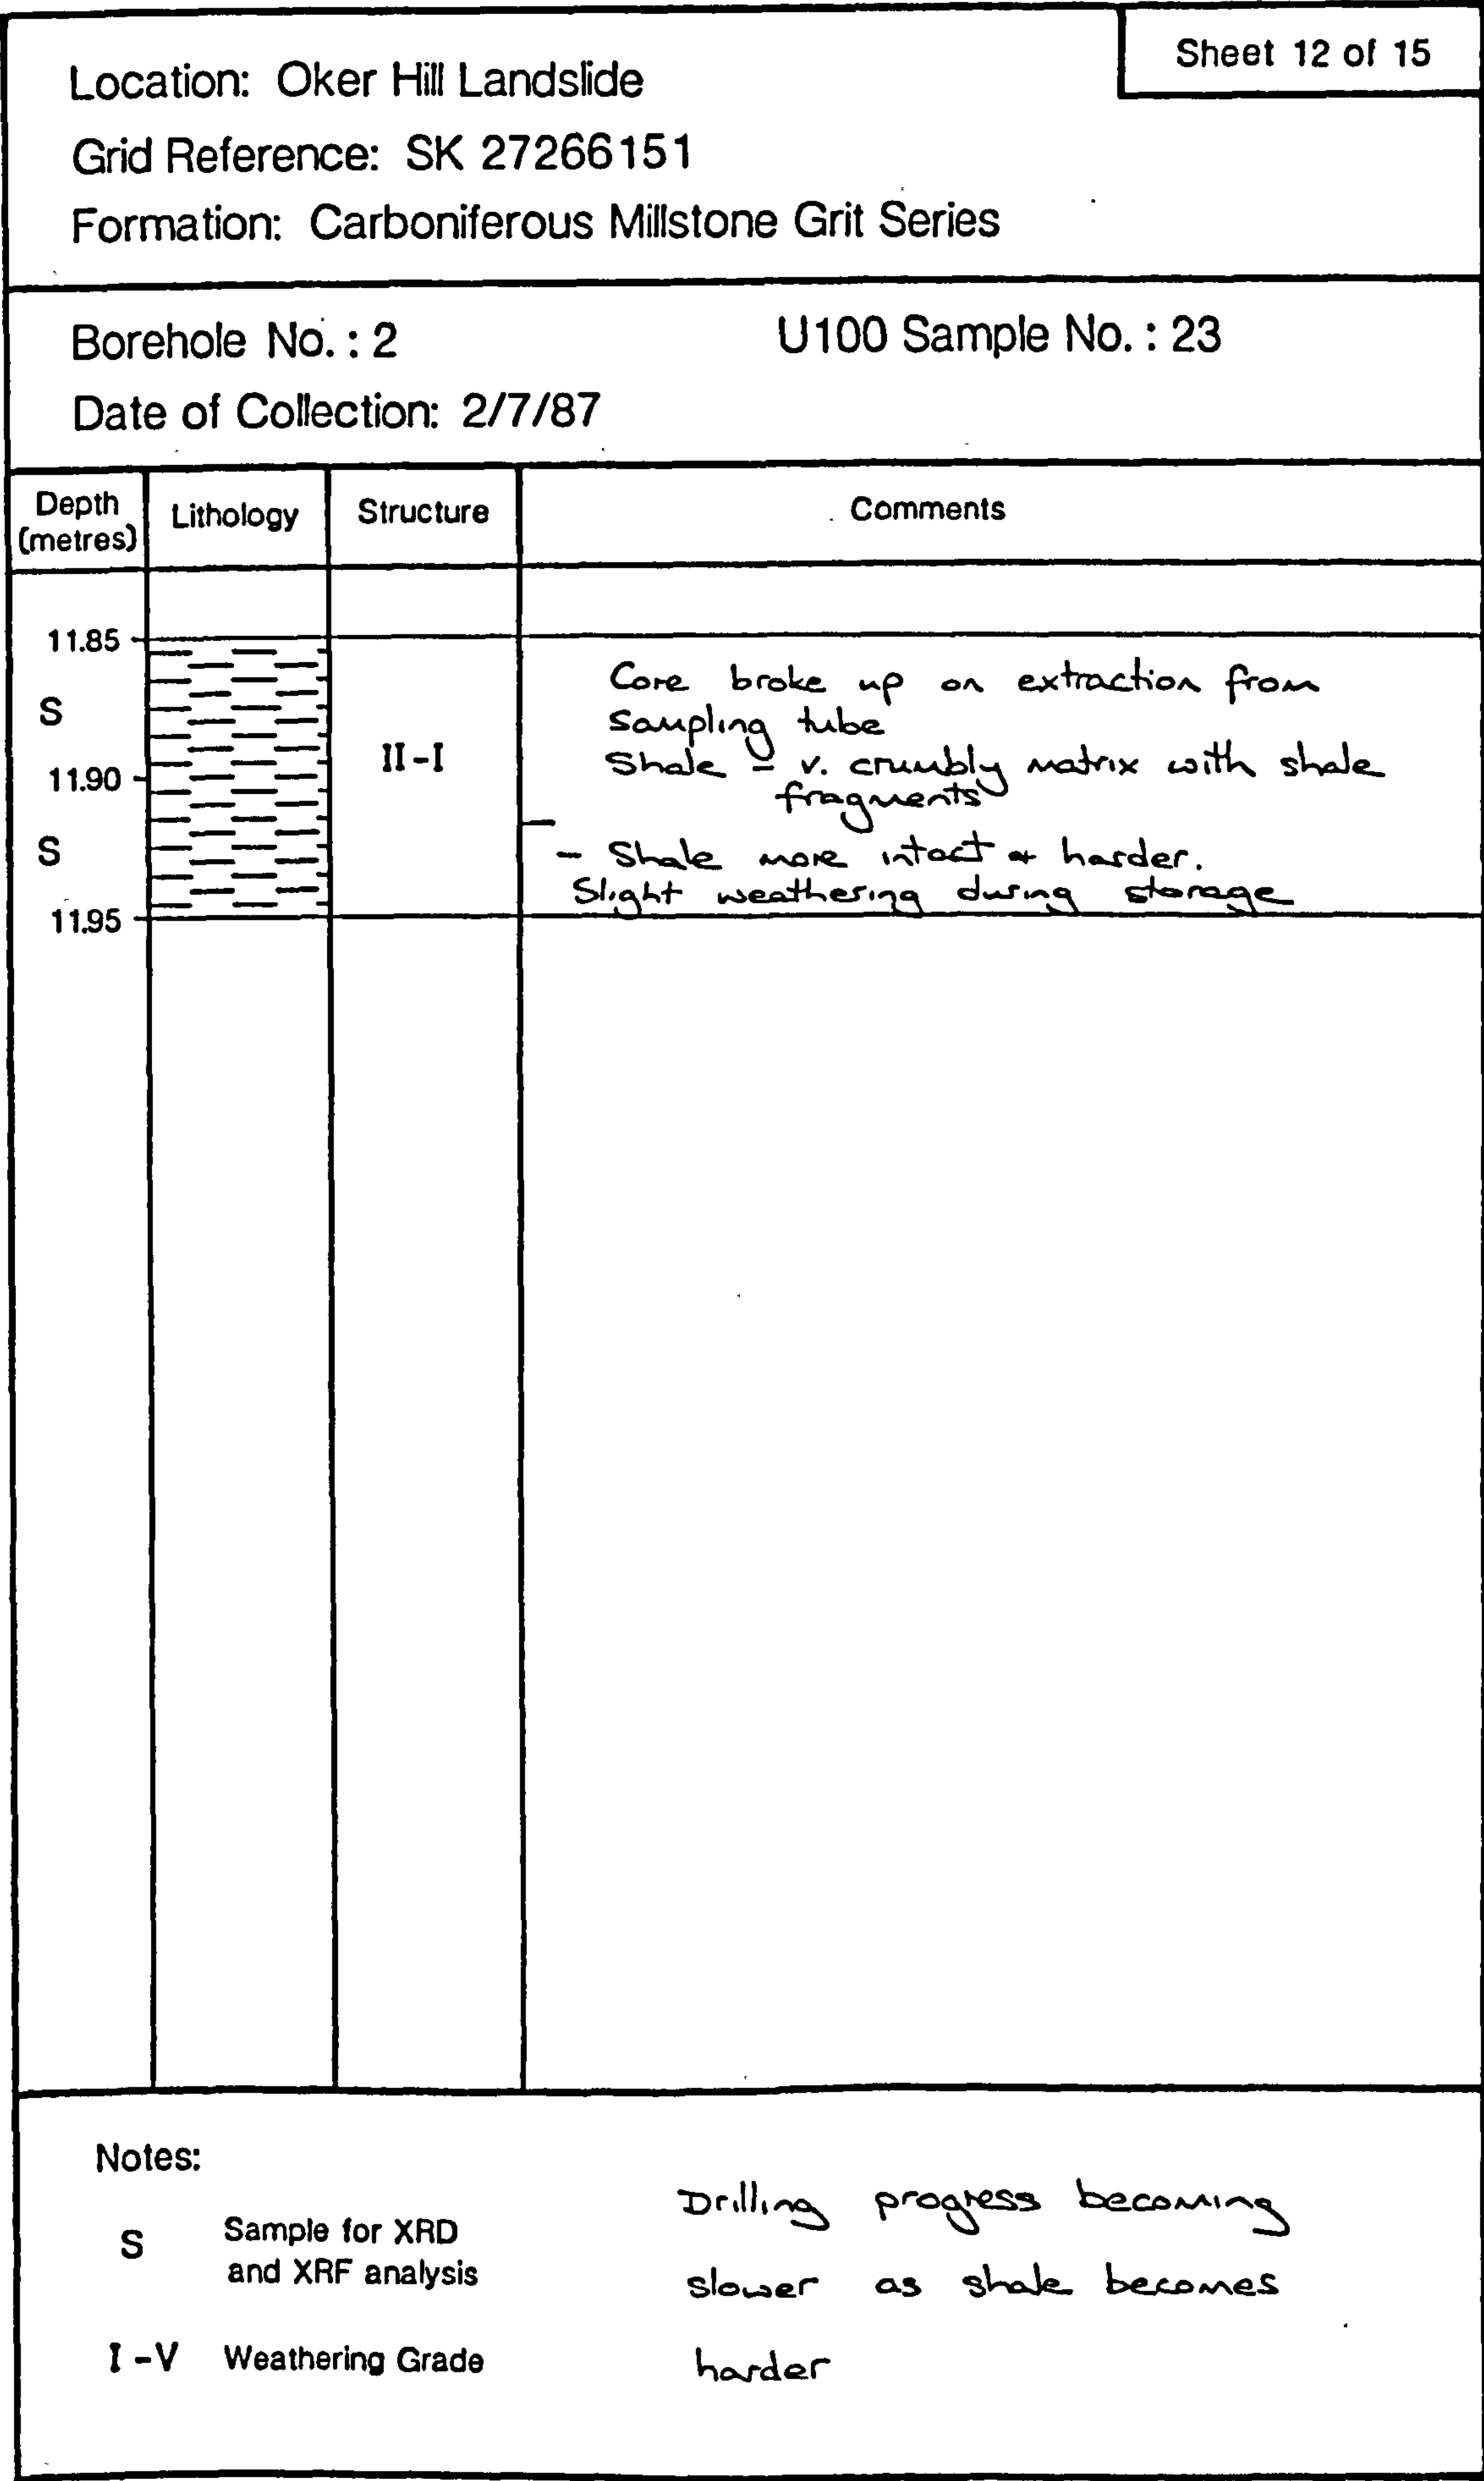 Sheet 12 of 15
Location: Oker Hill Landslide
Grid Reference: SK 27266151
Formation: Carboniferous Millstone Grit Series
Borehole No. : 2 U100 Sample No. : 23
Date of Collection: 2/7/87
Depth (metres) Lithology Structure Comments
11.85
Core broke up on extraction from
S
sampling tube
II-I
Shale - v. crumbly matrix with shale
11.90
fragments
S
- Shale more intact + harder.
Slight weathering during storage
11.95
Notes:
S Sample for XRD
and XRF analysis
I-V Weathering Grade
Drilling progress becoming
slower as shale becomes
harder